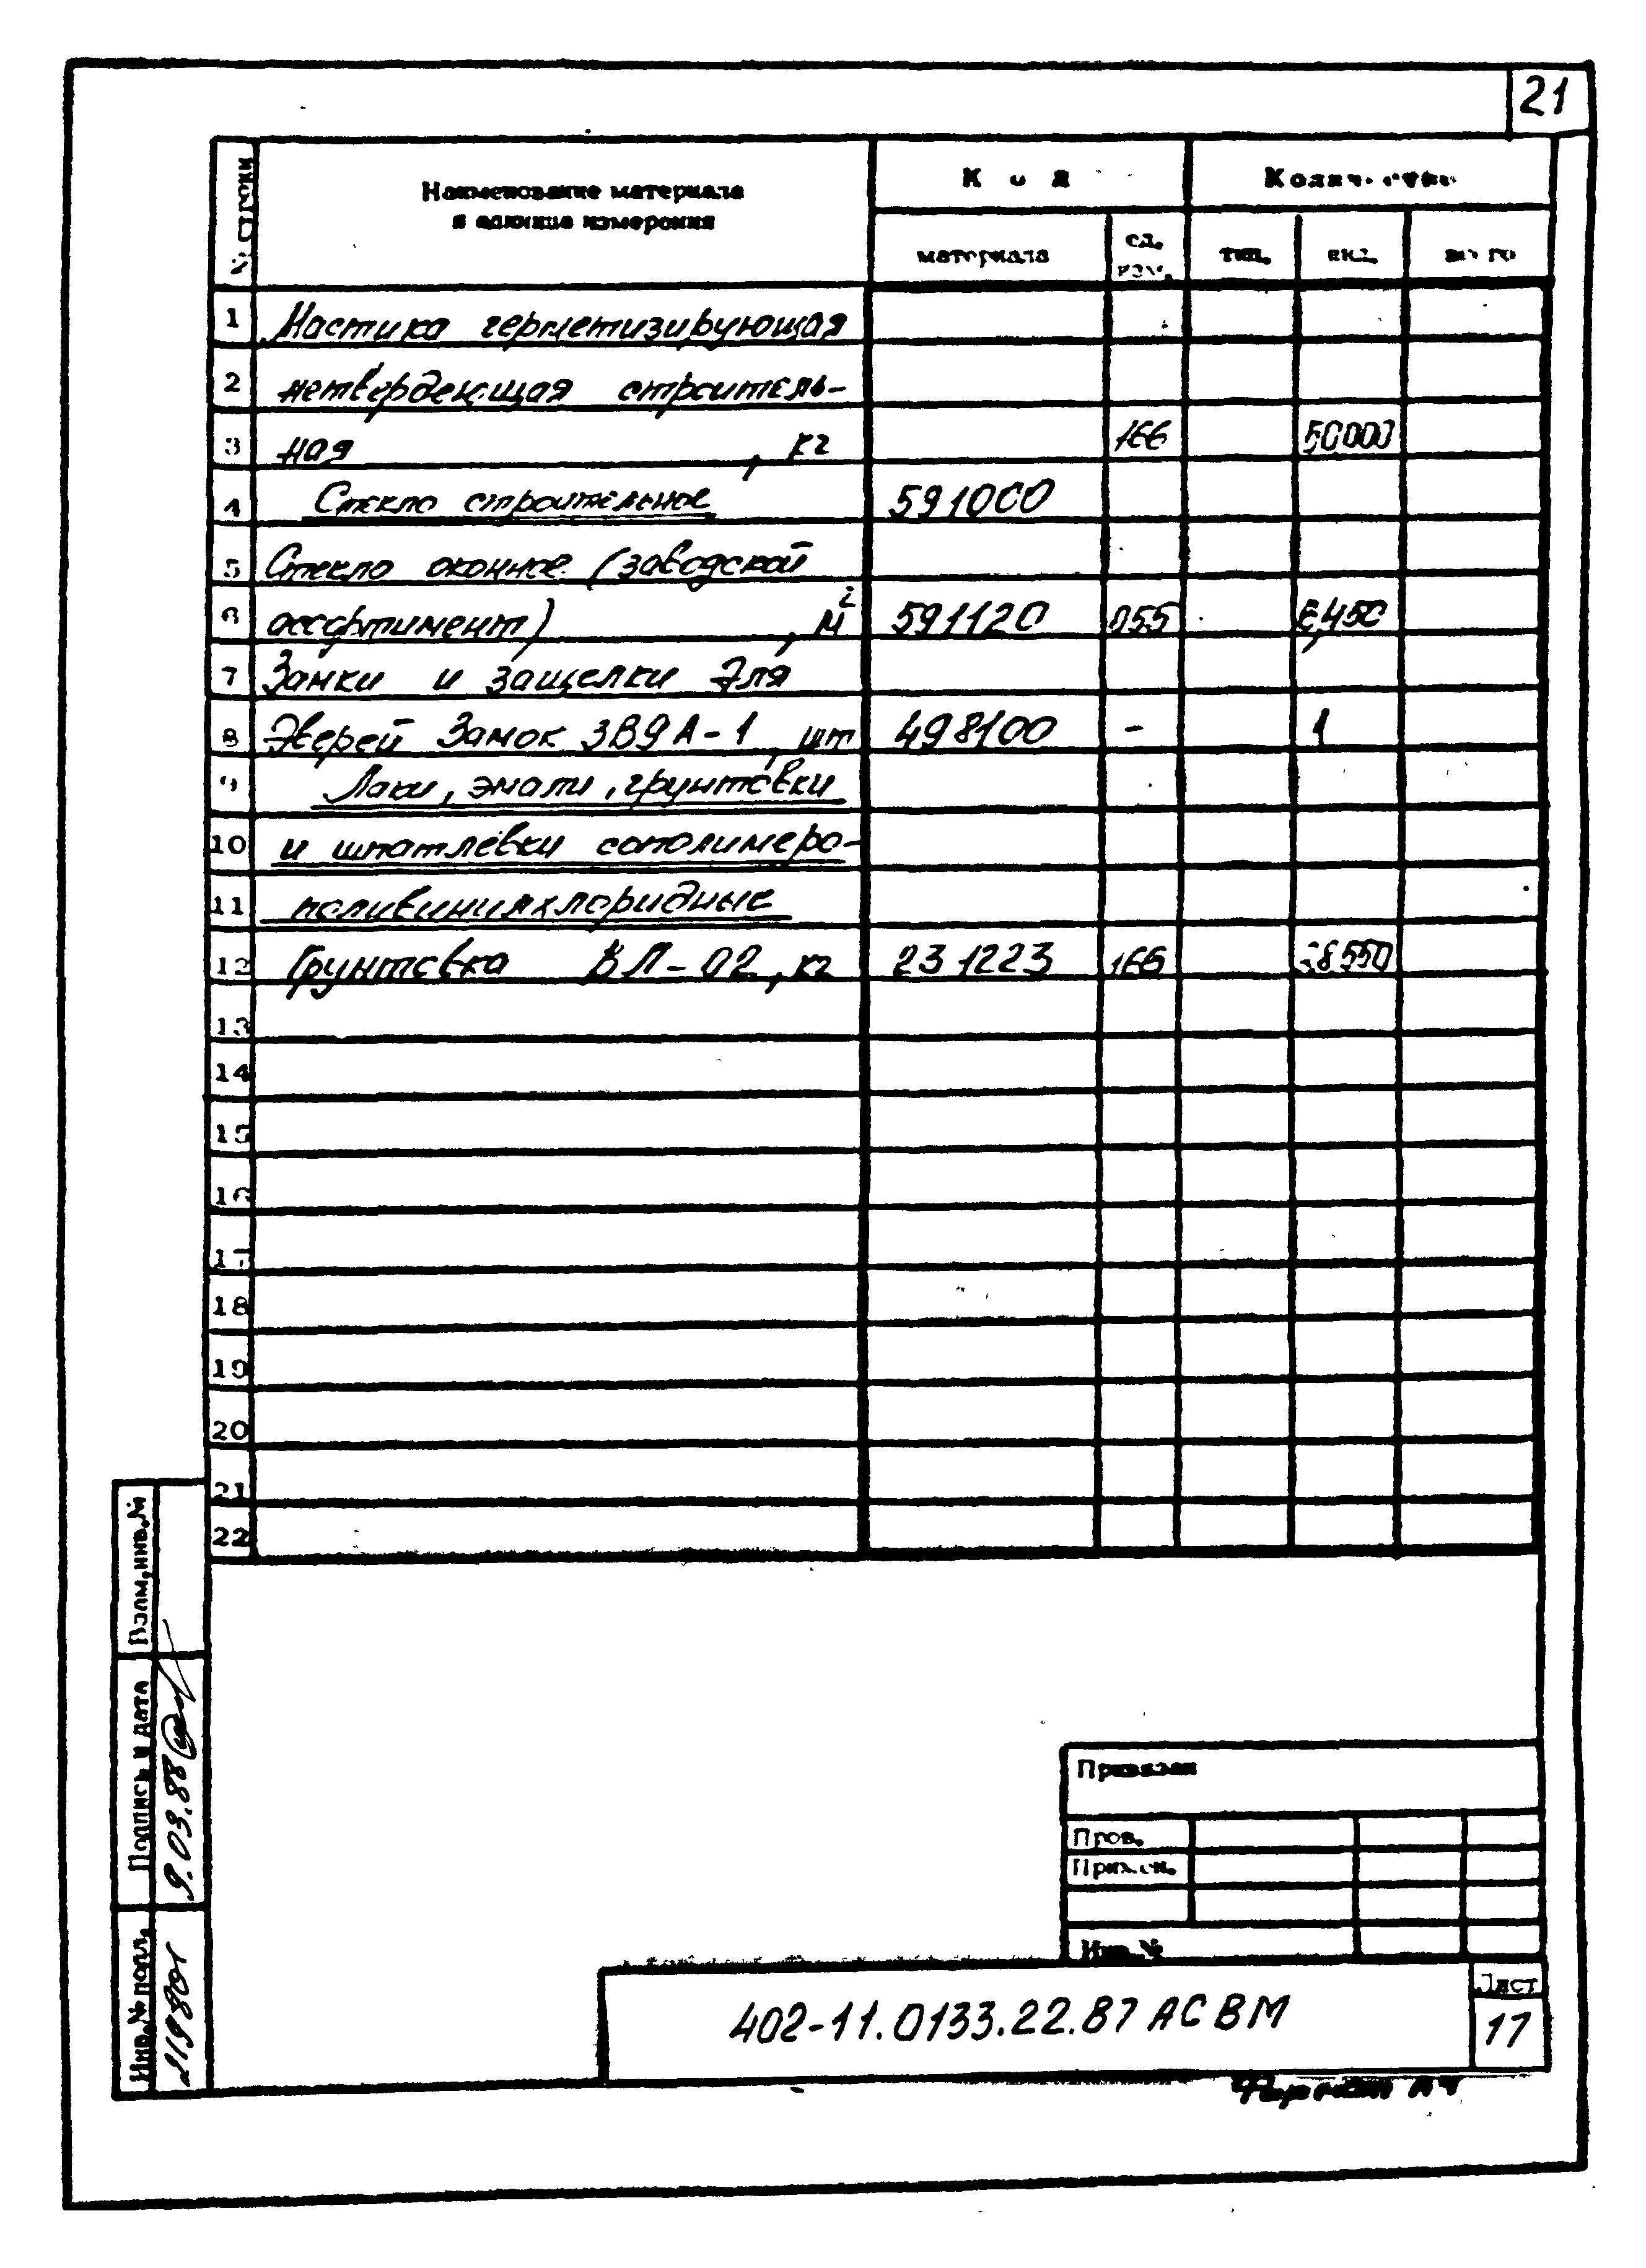 21
№ строки
Наименование материала
и единица измерения
Код
Количество
материала
ед. изм.
тип.
инд.
всего
1 Мастика герметизирующая
2 нетвердеющая строитель-
3 ная , кг 166 50000
4 Стекло строительное 591000
5 Стекло оконное (заводской
6 ассортимент) , м² 591120 055
7 Замки и защелки для
8 дверей Замок ЗВ9А-1, шт 498100 - 1
9 Лаки, эмали, грунтовки
10 и шпатлевки сополимеро-
11 поливинилхлоридные
12 Грунтовка ВЛ-02, кг 231223 166
13
14
15
16
17
18
19
20
21
22
Взам. инв. №
Подпись и дата
9.03.88
Инв. № подл.
Привязан
Пров.
Инв. №
402-11.0133.22.87 АС ВМ
Лист
17
Формат А4